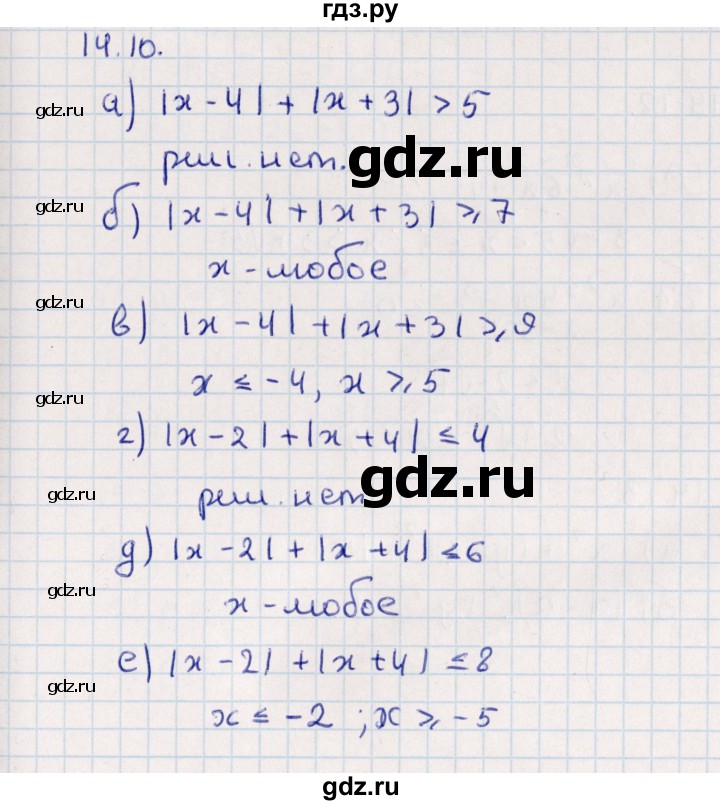 гдз.ру
14.10.
gdz.ru
а) |x - 4| + |x + 3| > 5
реш. нет.
gdz.ru
gdz.ru
б) |x - 4| + |x + 3| ⩾ 7
x - любое
gdz.ru
в) |x - 4| + |x + 3| ⩾ 9
x ≤ -4, x ⩾ 5
gdz.ru
г) |x - 2| + |x + 4| ≤ 4
gdz.ru
gdz.ru
реш. нет
д) |x - 2| + |x + 4| ≤ 6
gdz.ru
x - любое
е) |x - 2| + |x + 4| ≤ 8
gdz.ru
x ≤ -2 ; x ⩾ -5
gdz.ru